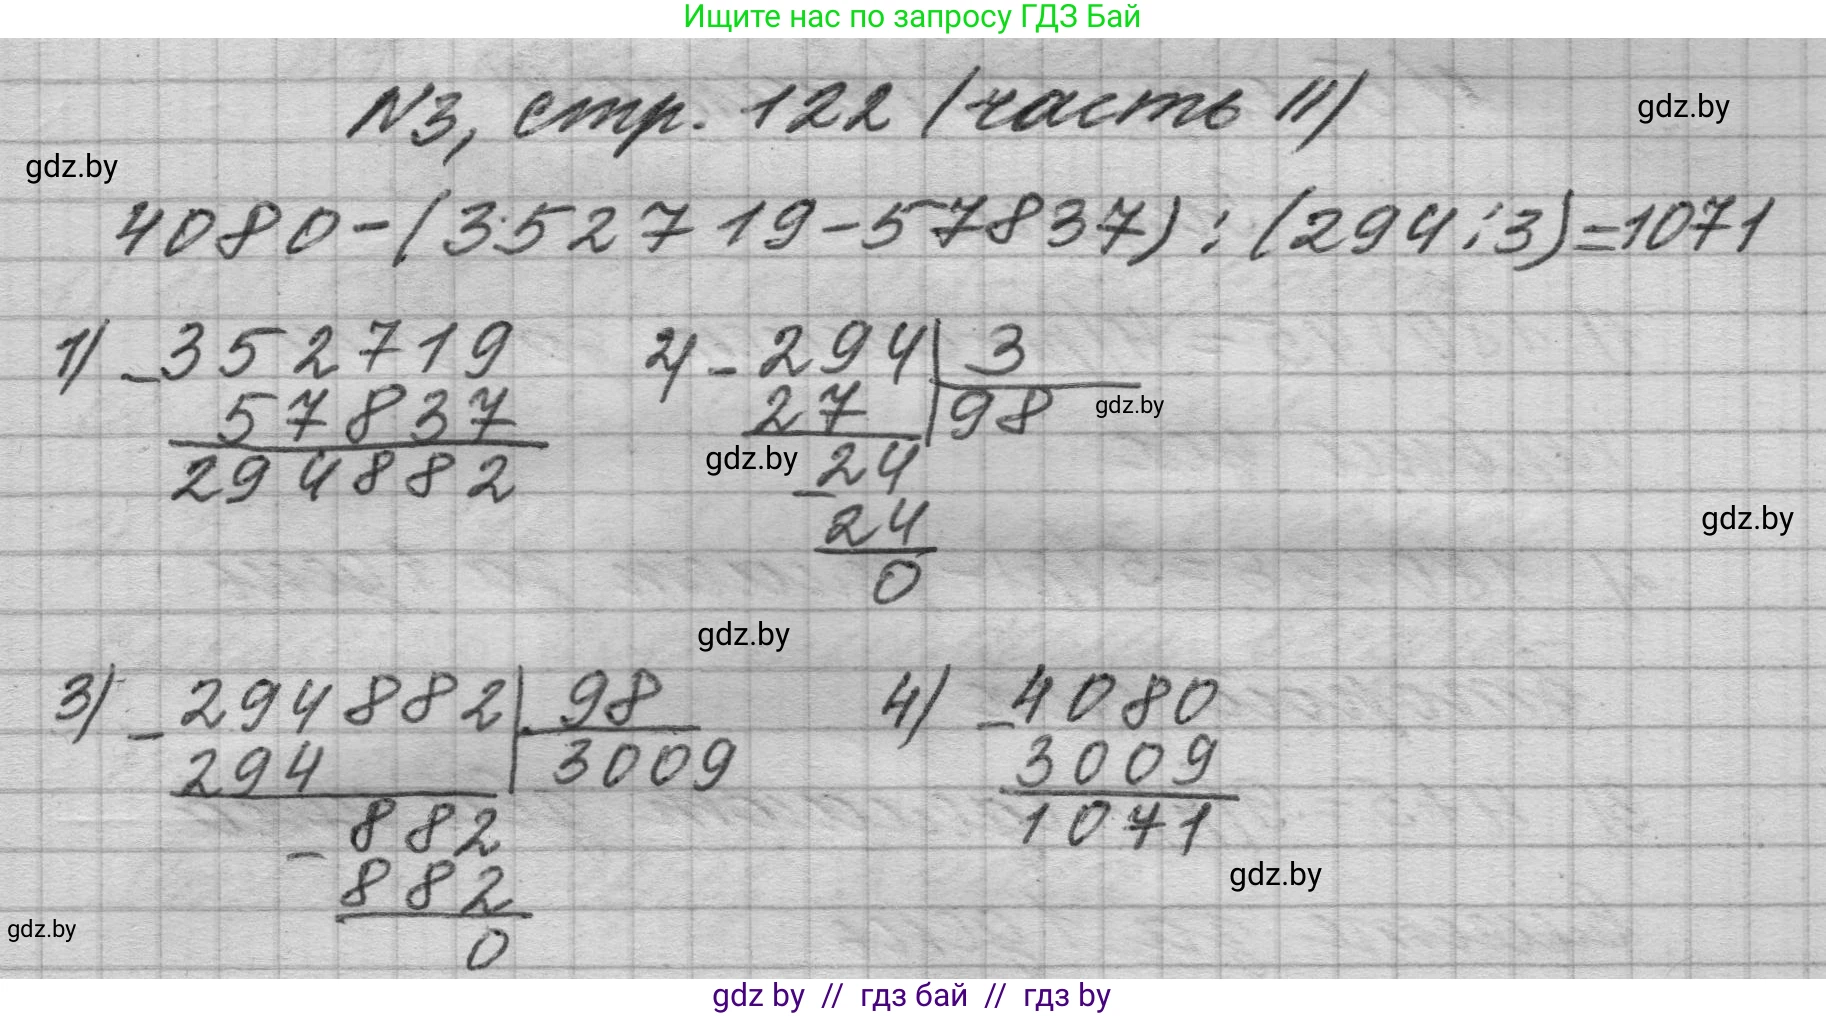 Ищите нас по запросу ГДЗ Бай
N3, стр. 122 (часть II)
gdz.by
gdz.by
4080-(352719-57837):(294:3)=1071
1) -352719
57837
294882
2) -294|3
27 |98
-24
24
0
gdz.by
gdz.by
gdz.by
gdz.by
3) -294882|98
294 |3009
-882
882
0
4) -4080
3009
1071
gdz.by
gdz.by
gdz by // гдз бай // гдз by